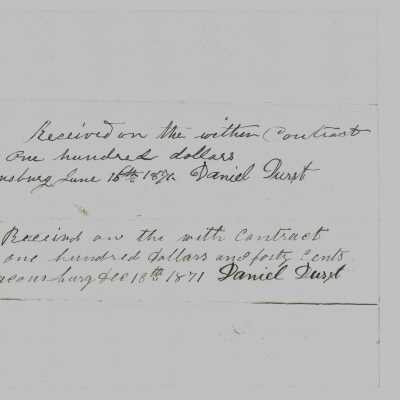 Received on the within Contract
one hundred dollars
nsburg June 16th 187 Daniel Durst
Receivd on the with Contract
one hundred dollars and forty Cents
aconsburg Dec 18th 1871 Daniel Durst